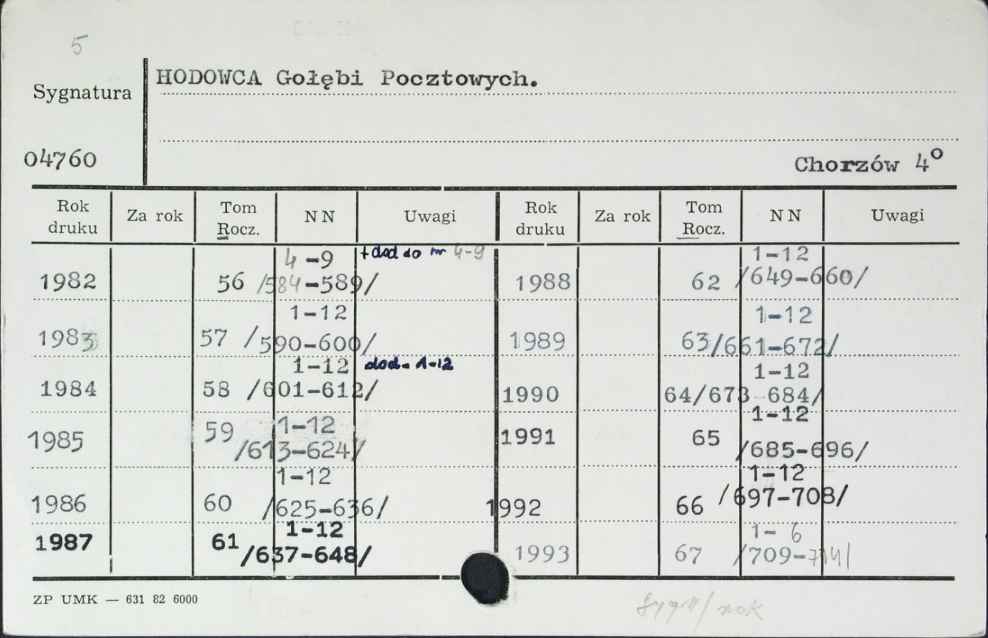 5
HODOWCA Gołębi Pocztowych.
Sygnatura
04760
Chorzów 4°
Rok druku Za rok Tom Rocz. NN Uwagi Rok druku Za rok Tom Rocz. NN Uwagi
4-9 + dod do nr 4-9
1982 56 /584-589/
1-12
1983 57 /590-600/
1-12 dod. 1-12
1984 58 /601-612/
1-12
1985 59 /613-624/
1-12
1986 60 /625-636/
1-12
1987 61 /637-648/
1-12
1988 62 /649-660/
1-12
1989 63/661-672/
1-12
1990 64/673-684/
1-12
1991 65 /685-696/
1-12
1992 66 /697-708/
1-6
1993 67 /709-714/
ZP UMK — 631 82 6000